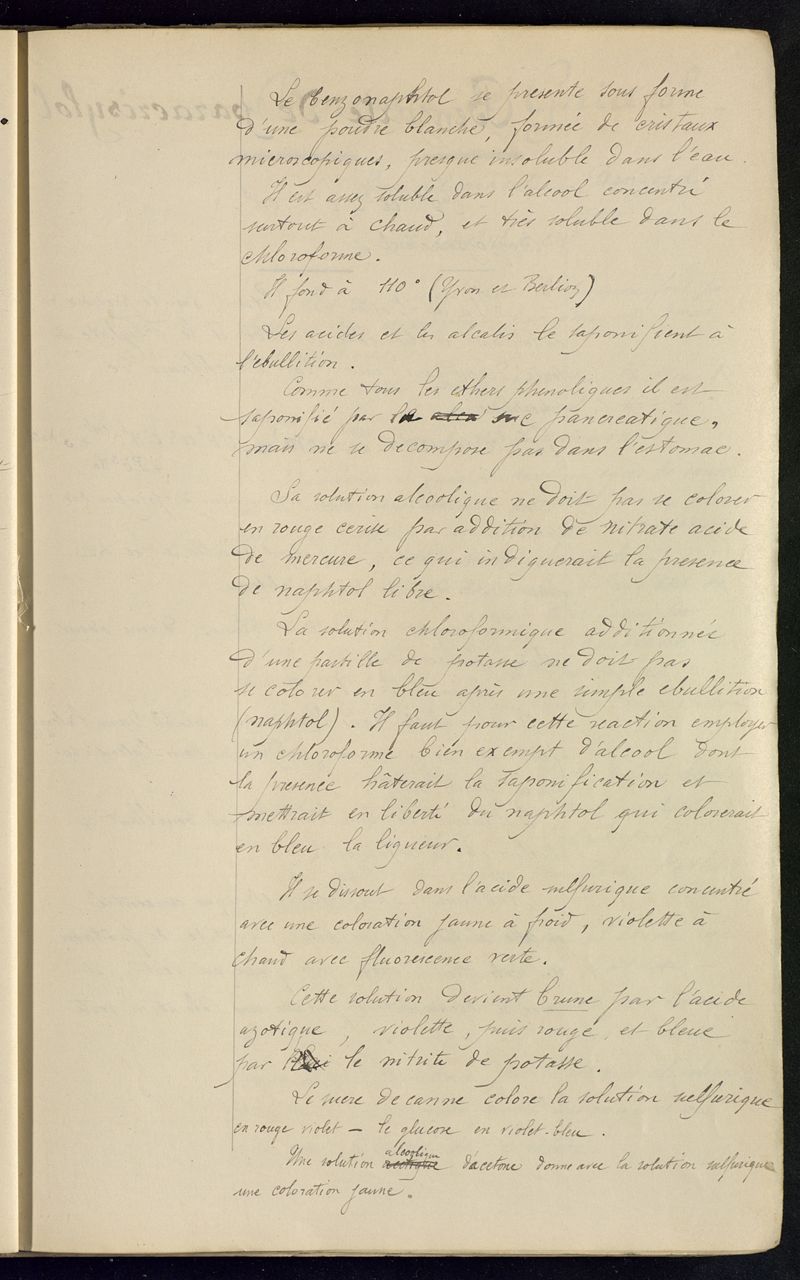 Le benzonaphtol se presente sous forme
d'une poudre blanche, formée de cristaux
microscopiques, presque insoluble dans l'eau.
Il est assez soluble dans l'alcool concentré
surtout à chaud, et très soluble dans le
chloroforme.
Il fond à 110° (Yvon et Berlioz)
Les acides et les alcalis le saponifient à
l'ebullition.
Comme tous les ethers phenoliques il est
saponifié par suc pancreatique,
mais ne se decompose pas dans l'estomac.
Sa solution alcoolique ne doit pas se colorer
en rouge cerise par addition de nitrate acide
de mercure, ce qui indiquerait la presence
de naphtol libre.
La solution chloroformique additionnée
d'une pastille de potasse ne doit pas
se colorer en bleu après une simple ebullition
(naphtol). Il faut pour cette reaction employer
un chloroforme bien exempt d'alcool dont
la presence hâterait la saponification et
mettrait en liberté du naphtol qui colorerait
en bleu la liqueur.
Il se dissout dans l'acide sulfurique concentré
avec une coloration jaune à froid, violette à
chaud avec fluorescence verte.
Cette solution devient brune par l'acide
azotique, violette, puis rouge, et bleue
par le nitrite de potasse.
Le sucre de canne colore la solution sulfurique
en rouge violet – le glucose en violet-bleu.
Une solution alcoolique d'acetone donne avec la solution sulfurique
une coloration jaune.